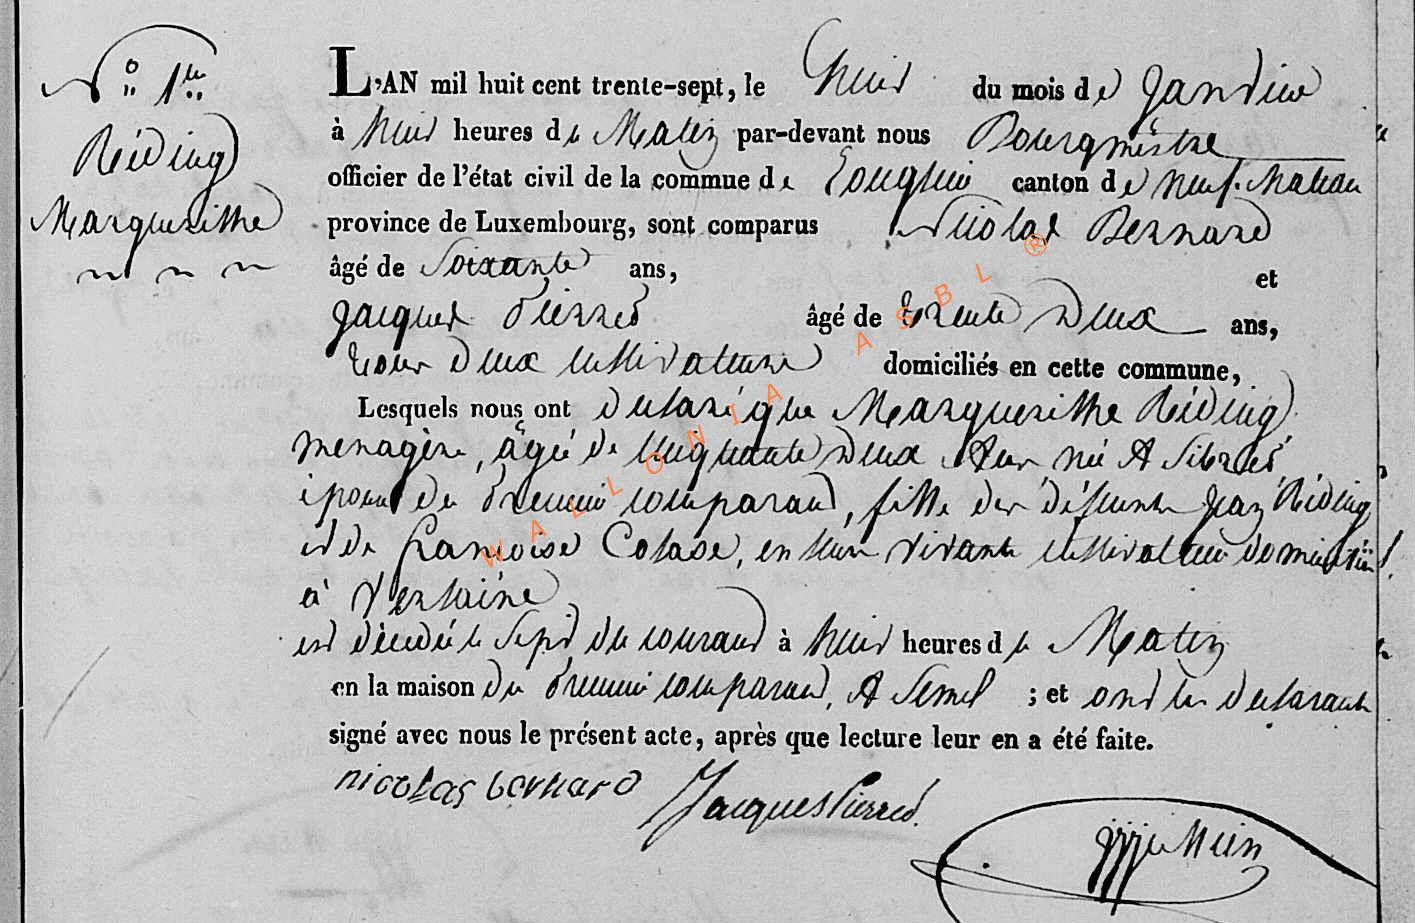 N° 1er
Réding
Marguerithe
L'AN mil huit cent trente-sept, le huit du mois de Janvier
à huit heures de Matin par-devant nous Bourgmestre
officier de l'état civil de la commue de Longlier canton de Neuf-chateau
province de Luxembourg, sont comparus Nicolas Bernard
âgé de soixante ans, et
Jacques Pierret âgé de trente Deux ans,
tous Deux cultivateurs domiciliés en cette commune,
Lesquels nous ont déclaré que Marguerithe Réding
menagère, agée de cinquante Deux Ans née A Sibret
épouse du premier comparant, fille des défunts Jean Réding
et de Françoise Colase, en leur vivant cultivateur domiciliés
à Verlaine
est décédée le Sept du courant à huit heures de Matin
en la maison du premier comparant, A Semel ; et ont les declarants
signé avec nous le présent acte, après que lecture leur en a été faite.
nicolas bernard Jacques Pierret
WALLONIA ASBL ®